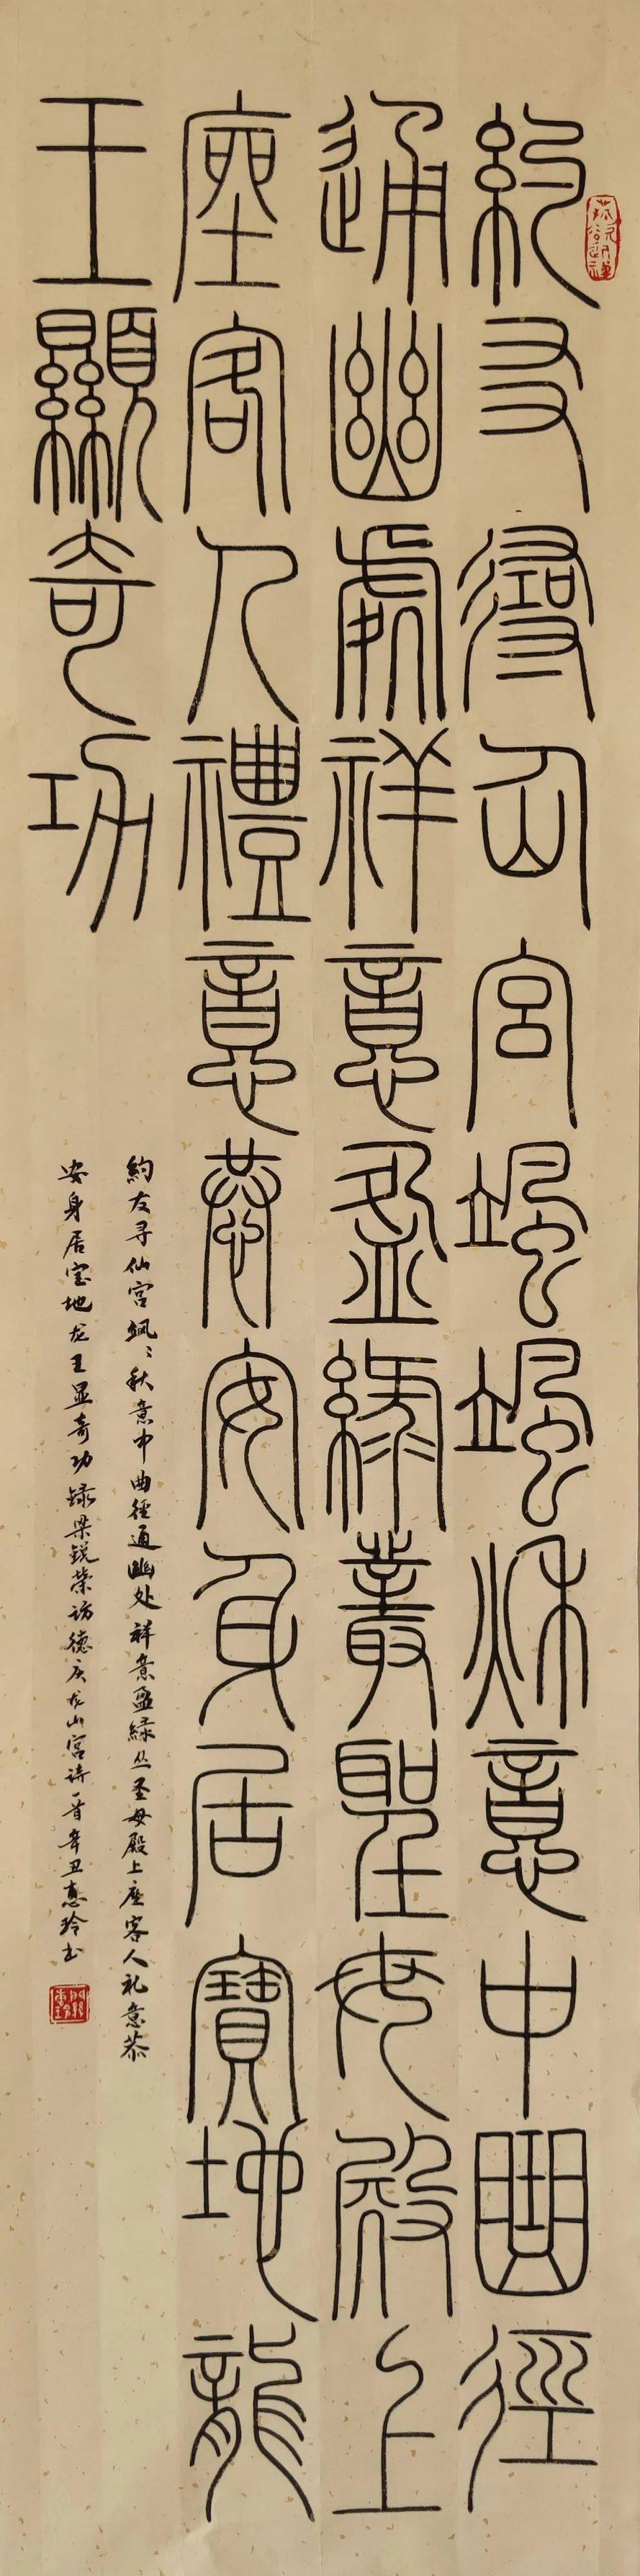 約友尋仙宮颯颯秋意中曲徑
通幽處祥意盈綠叢聖母殿上
座客人禮意恭安身居寶地龍
王顯奇功
約友寻仙宫飒〻秋意中曲径通幽处祥意盈緑丛圣母殿上座客人礼意恭
安身居宝地龙王显奇功録梁锐荣访德庆龙山宫诗一首辛丑惠玲书